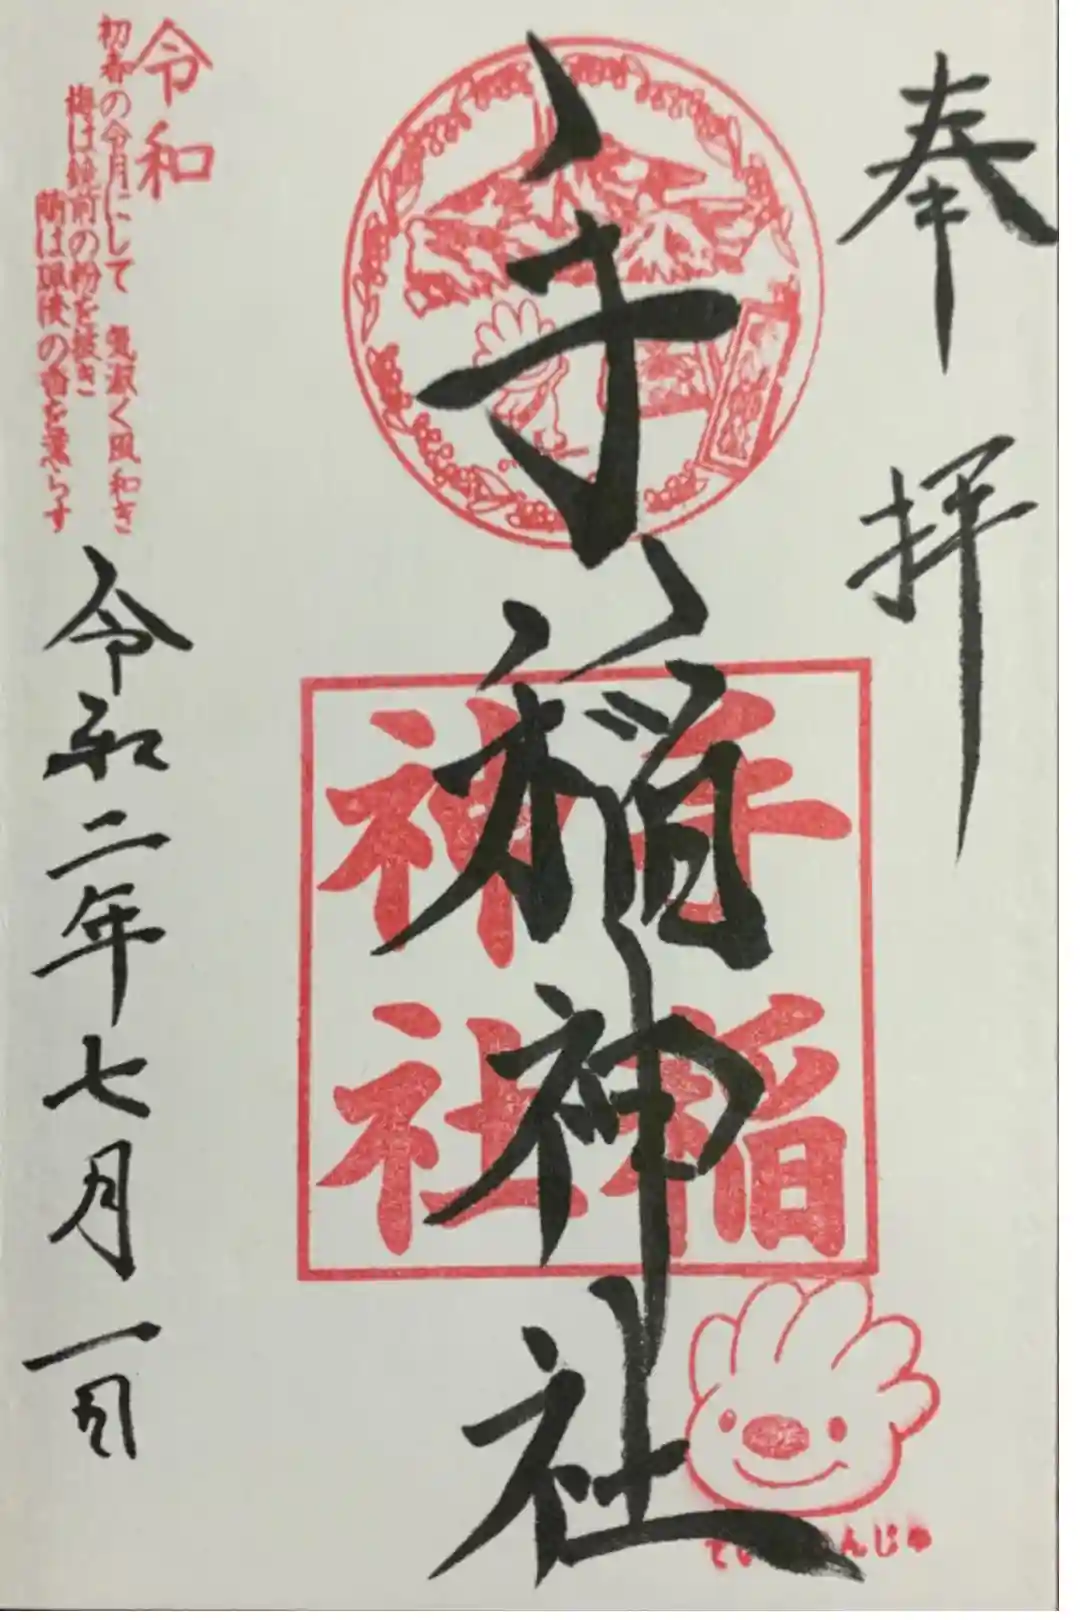 奉拝
手稲神社
手稲
神社
令和
初春の令月にして 氣淑く風和ぎ
梅は鏡前の粉を披き
蘭は珮後の香を薫らす
令和二年七月一日